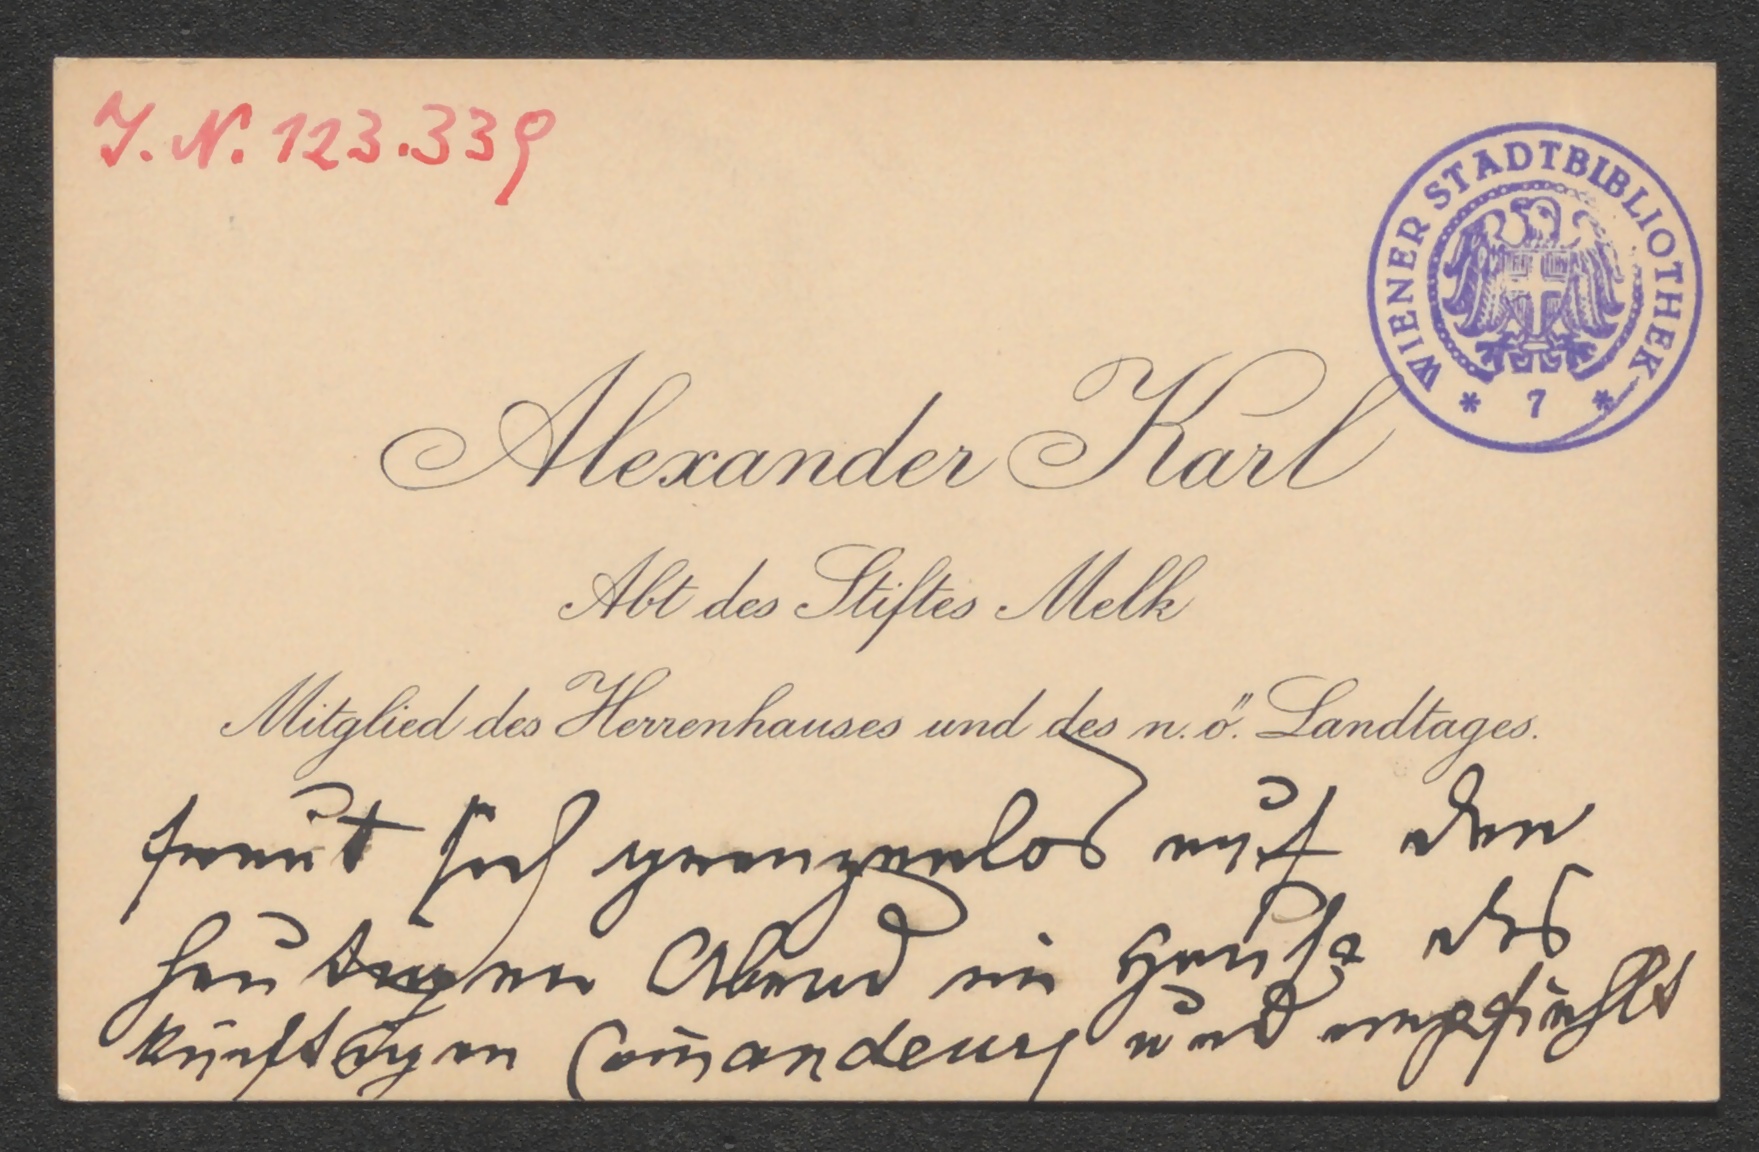 J. N. 123.339
WIENER STADTBIBLIOTHEK
* 7 *
Alexander Karl
Abt des Stiftes Melk
Mitglied des Herrenhauses und des n. ö. Landtages.
freut sich grenzenlos auf den
heutigen Abend im Hause des
künftigen Com̅andeurs und empfiehlt